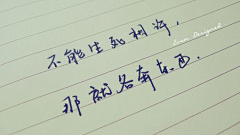 不能生死相许，
那就各奔东西．